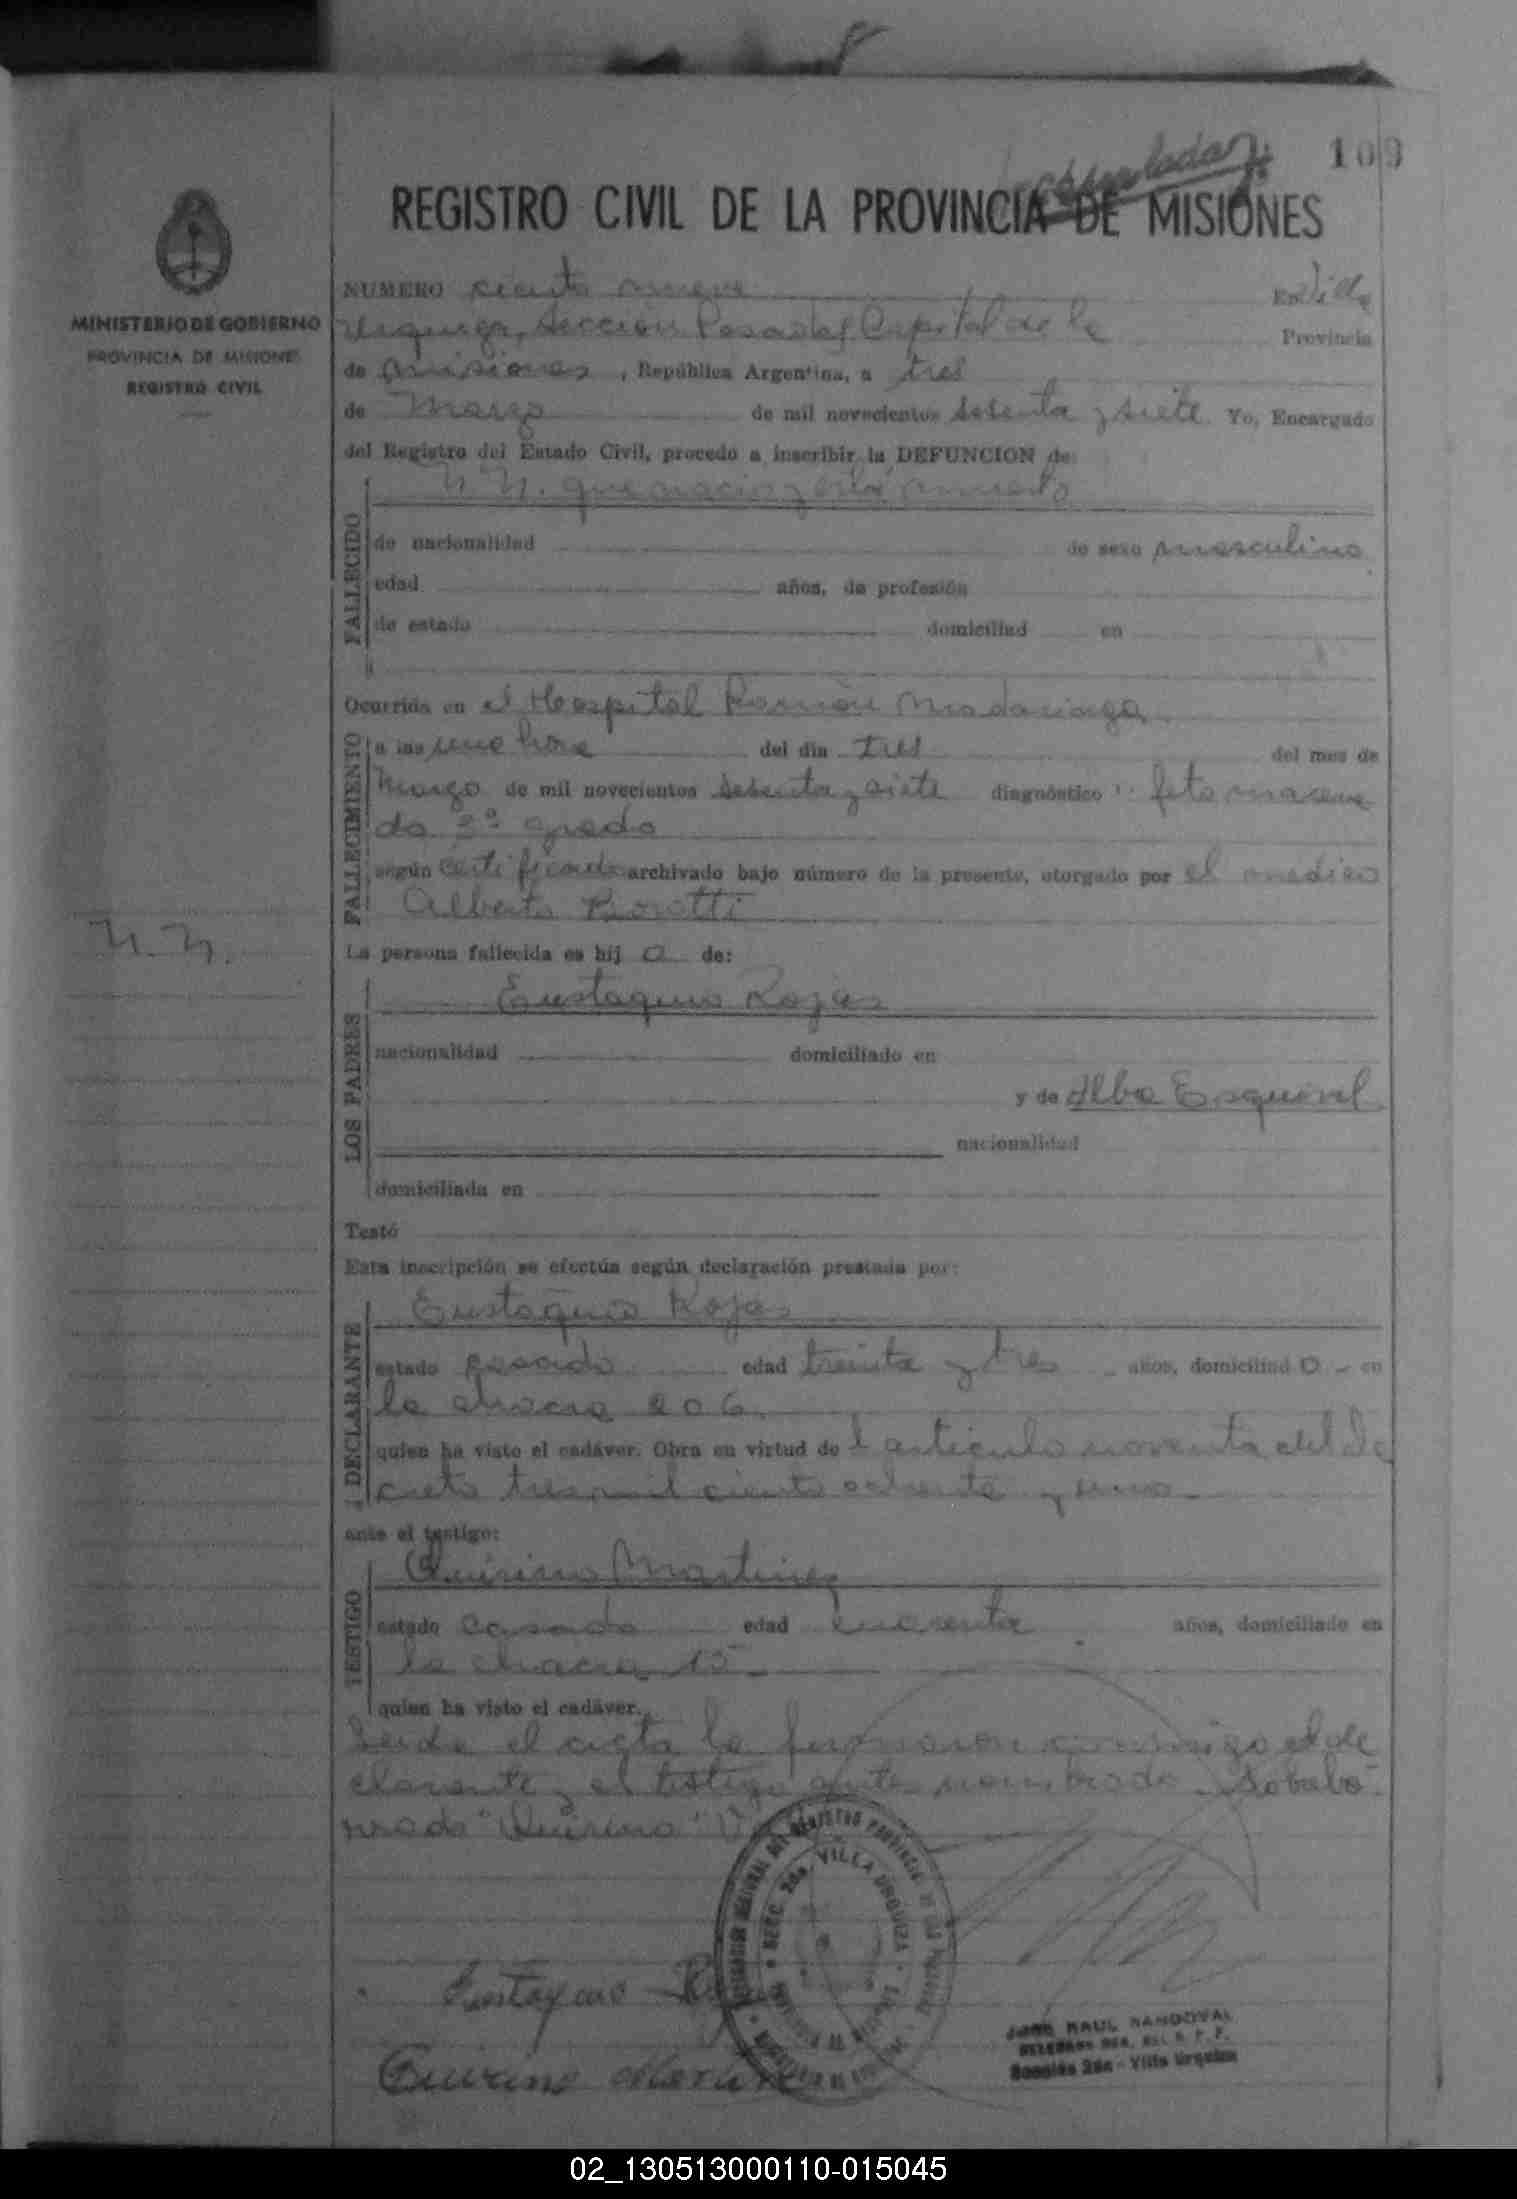 109
REGISTRO CIVIL DE LA PROVINCIA DE MISIONES
MINISTERIO DE GOBIERNO
PROVINCIA DE MISIONES
REGISTRO CIVIL
NUMERO ciento nueve En Villa
Urquiza, Sección Posadas Capital de la Provincia
de Misiones, República Argentina, a tres
de Marzo de mil novecientos sesenta y siete. Yo, Encargado
del Registro del Estado Civil, procedo a inscribir la DEFUNCION de:
FALLECIDO
N. N. que nacio y está muerto
de nacionalidad de sexo masculino
edad años, de profesión
de estado domiciliad en
Ocurrida en el Hospital Ramón Madariaga
FALLECIMIENTO
a las una hora del día tres del mes de
Marzo de mil novecientos sesenta y siete diagnóstico: feto macera
do 3º grado
según certificado archivado bajo número de la presente, otorgado por el médico
Alberto
N. N.
La persona fallecida es hij o de:
LOS PADRES
Eustaquio Rojas
nacionalidad domiciliado en
y de Alba Esquivel
nacionalidad
domiciliada en
Testó
Esta inscripción se efectúa según declaración prestada por:
DECLARANTE
Eustaquio Rojas
estado casado edad treinta y tres años, domiciliad o - en
la chacra 206.
quien ha visto el cadáver. Obra en virtud de l articulo noventa del de
creto tres mil ciento ochenta y uno -
ante el testigo:
TESTIGO
Quirino Martinez
estado casado edad cuarenta años, domiciliado en
la chacra 15 -
quien ha visto el cadáver.
Leida el acta la firmaron conmigo el de
clarante y el testigo antes nombrado. Sobrebo
rrado "Quirino" V
SECC. 2da. VILLA URQUIZA
Eustaquio Rojas
Quirino Martinez
RAUL SANDOVAL
Sección 2da - Villa Urquiza
02_130513000110-015045